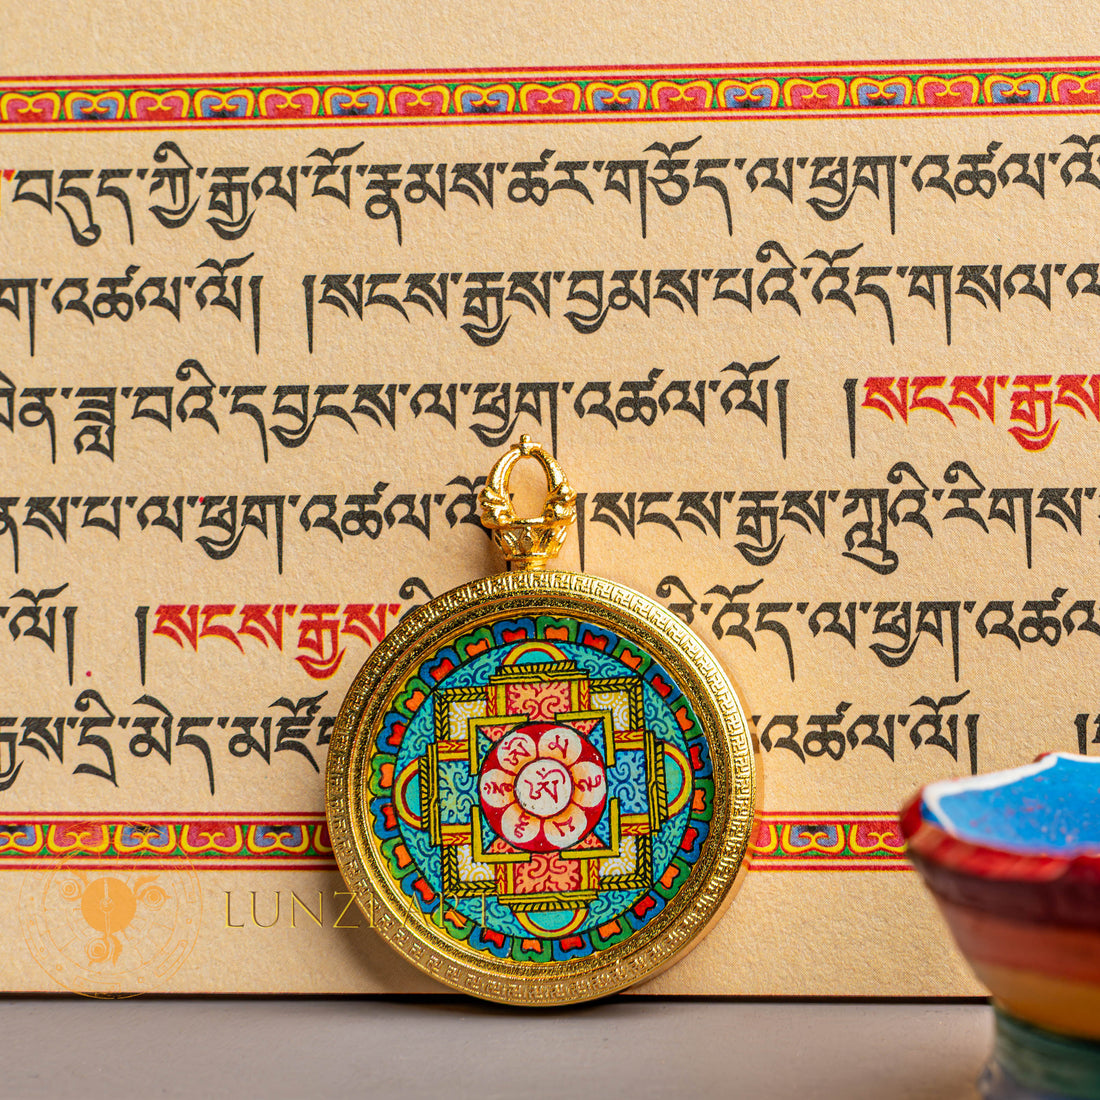 བདུད་ཀྱི་རྒྱལ་པོ་རྣམས་ཚར་གཅོད་ལ་ཕྱག་འཚལ་ལོ
འཚལ་ལོ། །སངས་རྒྱས་བྱམས་པའི་འོད་གསལ་ལ
ཟླ་བའི་དབྱངས་ལ་ཕྱག་འཚལ་ལོ། །སངས་རྒྱས
པ་ལ་ཕྱག་འཚལ་ལོ །སངས་རྒྱས་ཀླུའི་རིགས
ལོ། །སངས་རྒྱས་ འོད་ལ་ཕྱག་འཚལ
དྲི་མེད་མཛོ འཚལ་ལོ། །
LUNZI ART